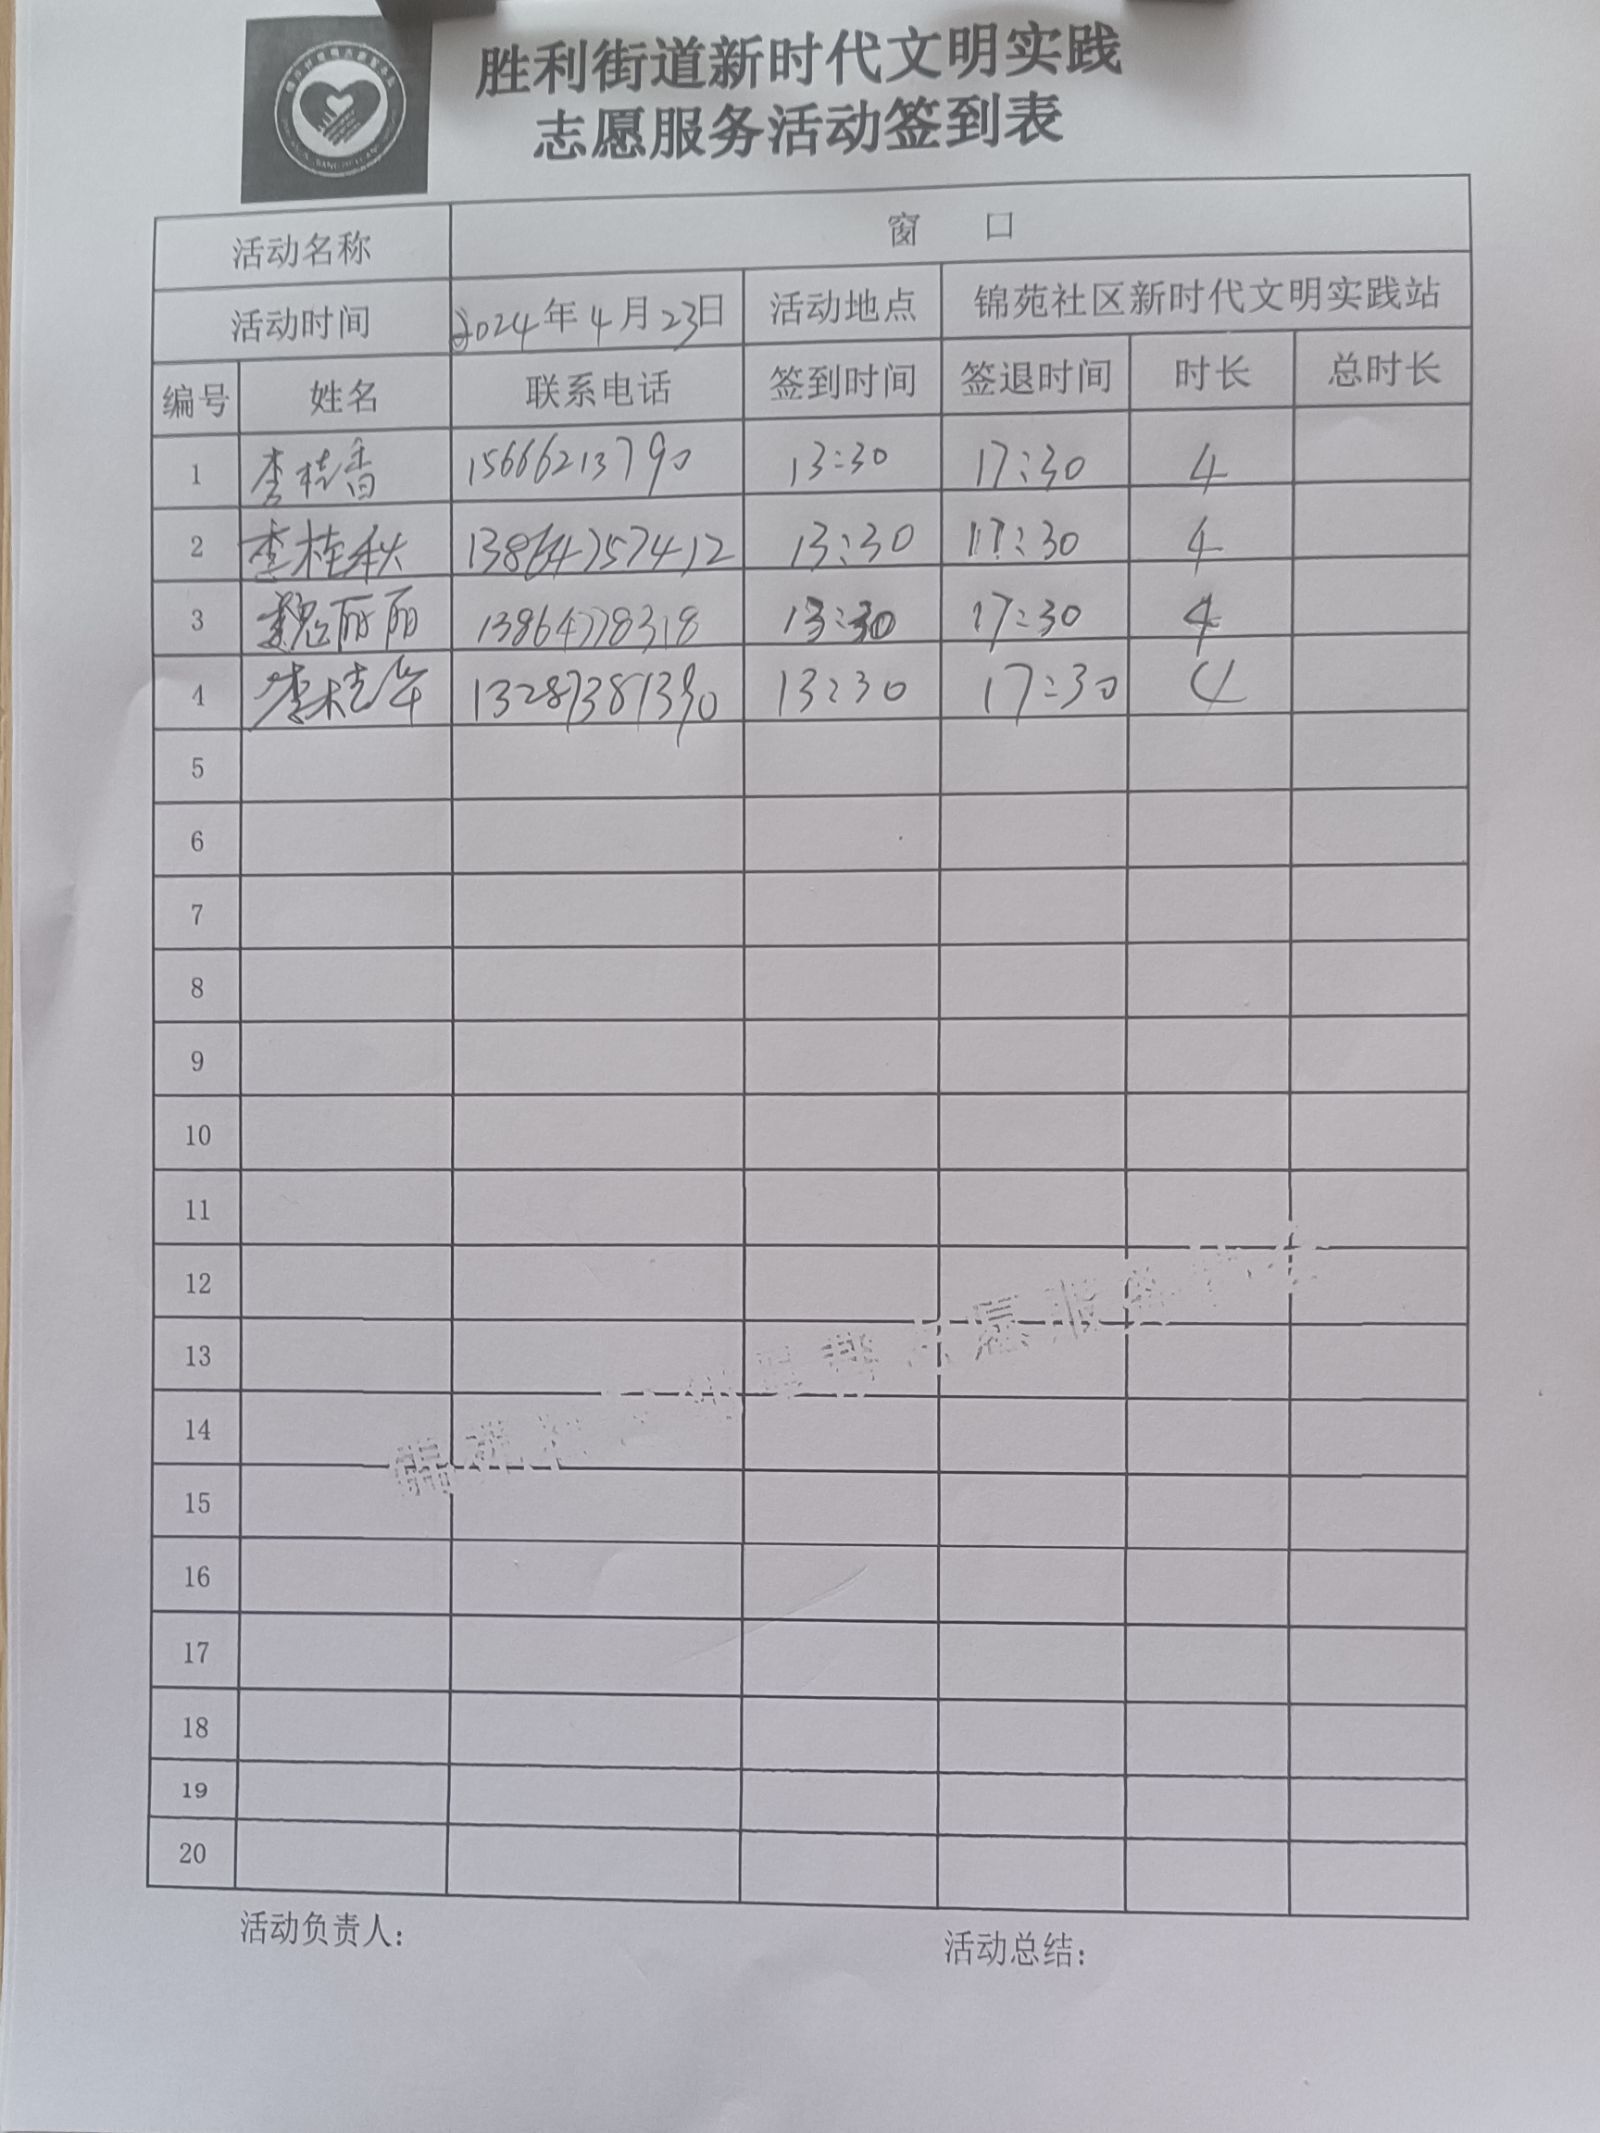 胜利街道新时代文明实践
志愿服务活动签到表
活动名称 窗 口
活动时间 2024年4月23日 活动地点 锦苑社区新时代文明实践站
编号 姓名 联系电话 签到时间 签退时间 时长 总时长
1 李桂香 15666213790 13:30 17:30 4
2 李桂秋 13864757412 13:30 17:30 4
3 魏丽丽 13864778318 13:30 17:30 4
4 李桂华 13287381390 13:30 17:30 4
5
6
7
8
9
10
11
12
13
14
15
16
17
18
19
20
活动负责人：
活动总结：